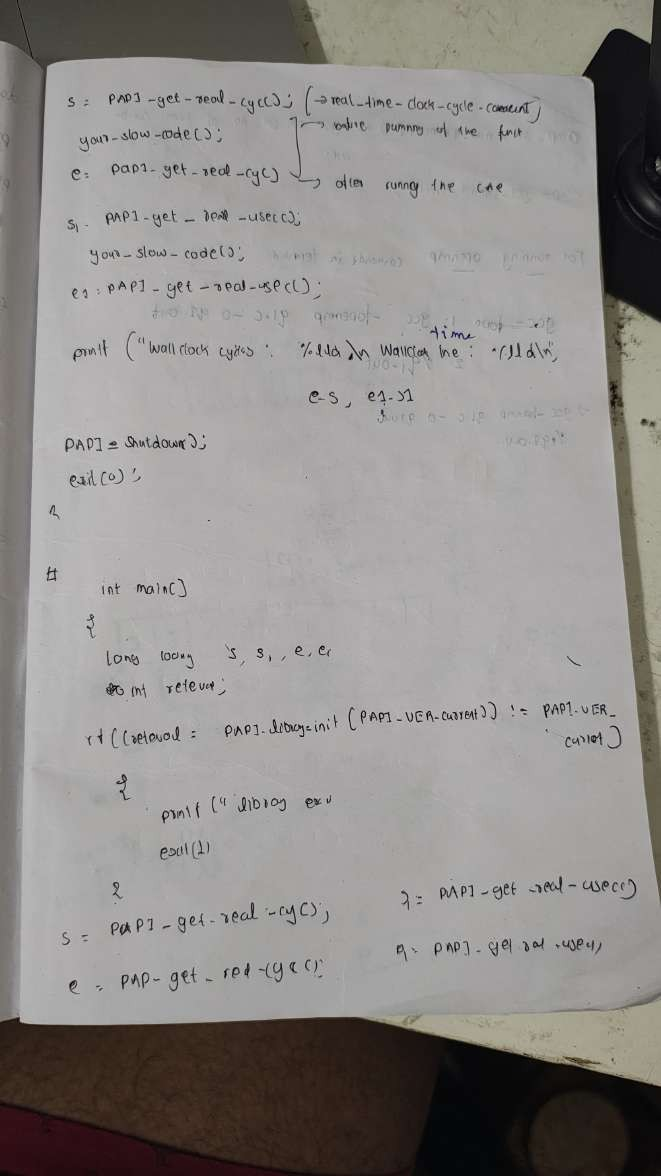 s = PAPI-get-real-cyc(); (→ real-time-clock-cycle-
your-slow-code(); → of the funct
e = PAPI-get-real-cyc() → after runng the
s1 = PAPI-get-real-usec();
your-slow-code();
e1 = PAPI-get-real-usec();
time
printf ("Wall clock cycles : %lld \n Wallclock : %lld\n",
e-s, e1-s1
PAPI = Shutdown();
exit(0);
}
#
int main()
{
long loong s, s1, e, e1
int reteval;
if ((reteval = PAPI-library-init (PAPI-VER-current)) != PAPI-VER-
current)
{
printf (" library
exit(1)
}
s = PAPI-get-real-cyc(); = PAPI-get-real-usec()
e = PAP-get-real-cyc(); = PAPI-get real-usec()